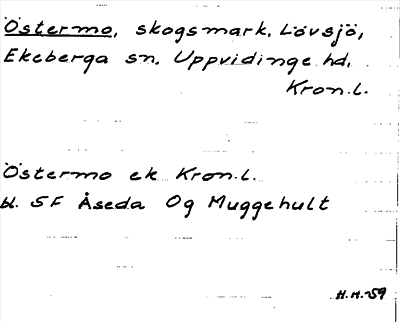 Östermo, skogsmark, Lövsjö,
Ekeberga sn, Uppvidinge hd,
Kron.l.
Östermo ek Kron.l.
bl. 5F Åseda Og Muggehult
H.H.-59